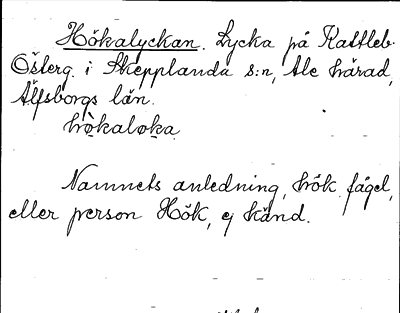 Hökalyckan. Lycka på Kattleb.
Österg. i Skepplanda s:n, Ale härad,
Älfsborgs län.
hökaloka
Namnets anledning, hök fågel,
eller person Hök, ej känd.